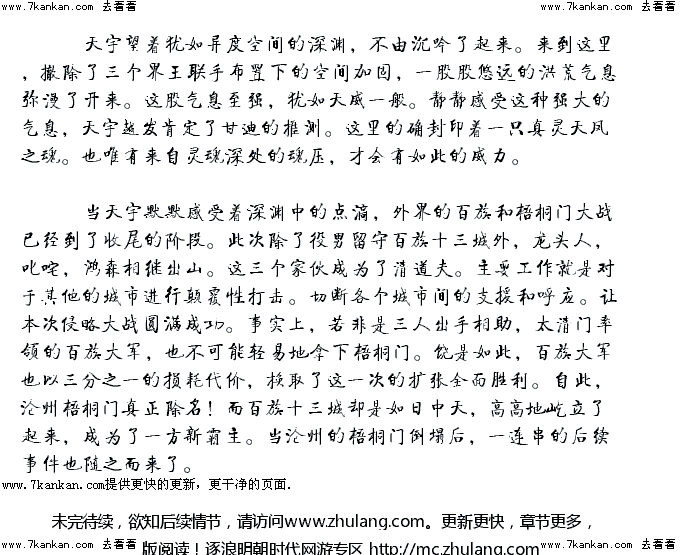 www.7kankan.com 去看看 www.7kankan.com 去看看
天宇望着犹如异度空间的深渊，不由沉吟了起来。来到这里
，撤除了三个界王联手布置下的空间加固，一股股悠远的洪荒气息
弥漫了开来。这股气息至强，犹如天威一般。静静感受这种强大的
气息，天宇越发肯定了甘迪的推测。这里的确封印着一只真灵天凤
之魂。也唯有来自灵魂深处的魂压，才会有如此的威力。
当天宇默默感受着深渊中的点滴，外界的百族和梧桐门大战
已经到了收尾的阶段。此次除了役男留守百族十三城外，龙头人，
叱咤，鸿森相继出山。这三个家伙成为了清道夫。主要工作就是对
于其他的城市进行颠覆性打击。切断各个城市间的支援和呼应。让
本次侵略大战圆满成功。事实上，若非是三人出手相助，太清门率
领的百族大军，也不可能轻易地拿下梧桐门。饶是如此，百族大军
也以三分之一的损耗代价，换取了这一次的扩张全面胜利。自此，
沧州梧桐门真正除名！而百族十三城却是如日中天，高高地屹立了
起来，成为了一方新霸主。当沧州的梧桐门倒塌后，一连串的后续
事件也随之而来了。
www.7kankan.com提供更快的更新，更干净的页面.
未完待续，欲知后续情节，请访问www.zhulang.com。更新更快，章节更多，
www.7kankan.com 去看看 版阅读！逐浪明朝时代网游专区 http://mc.zhulang.com/ www.7kankan.com 去看看